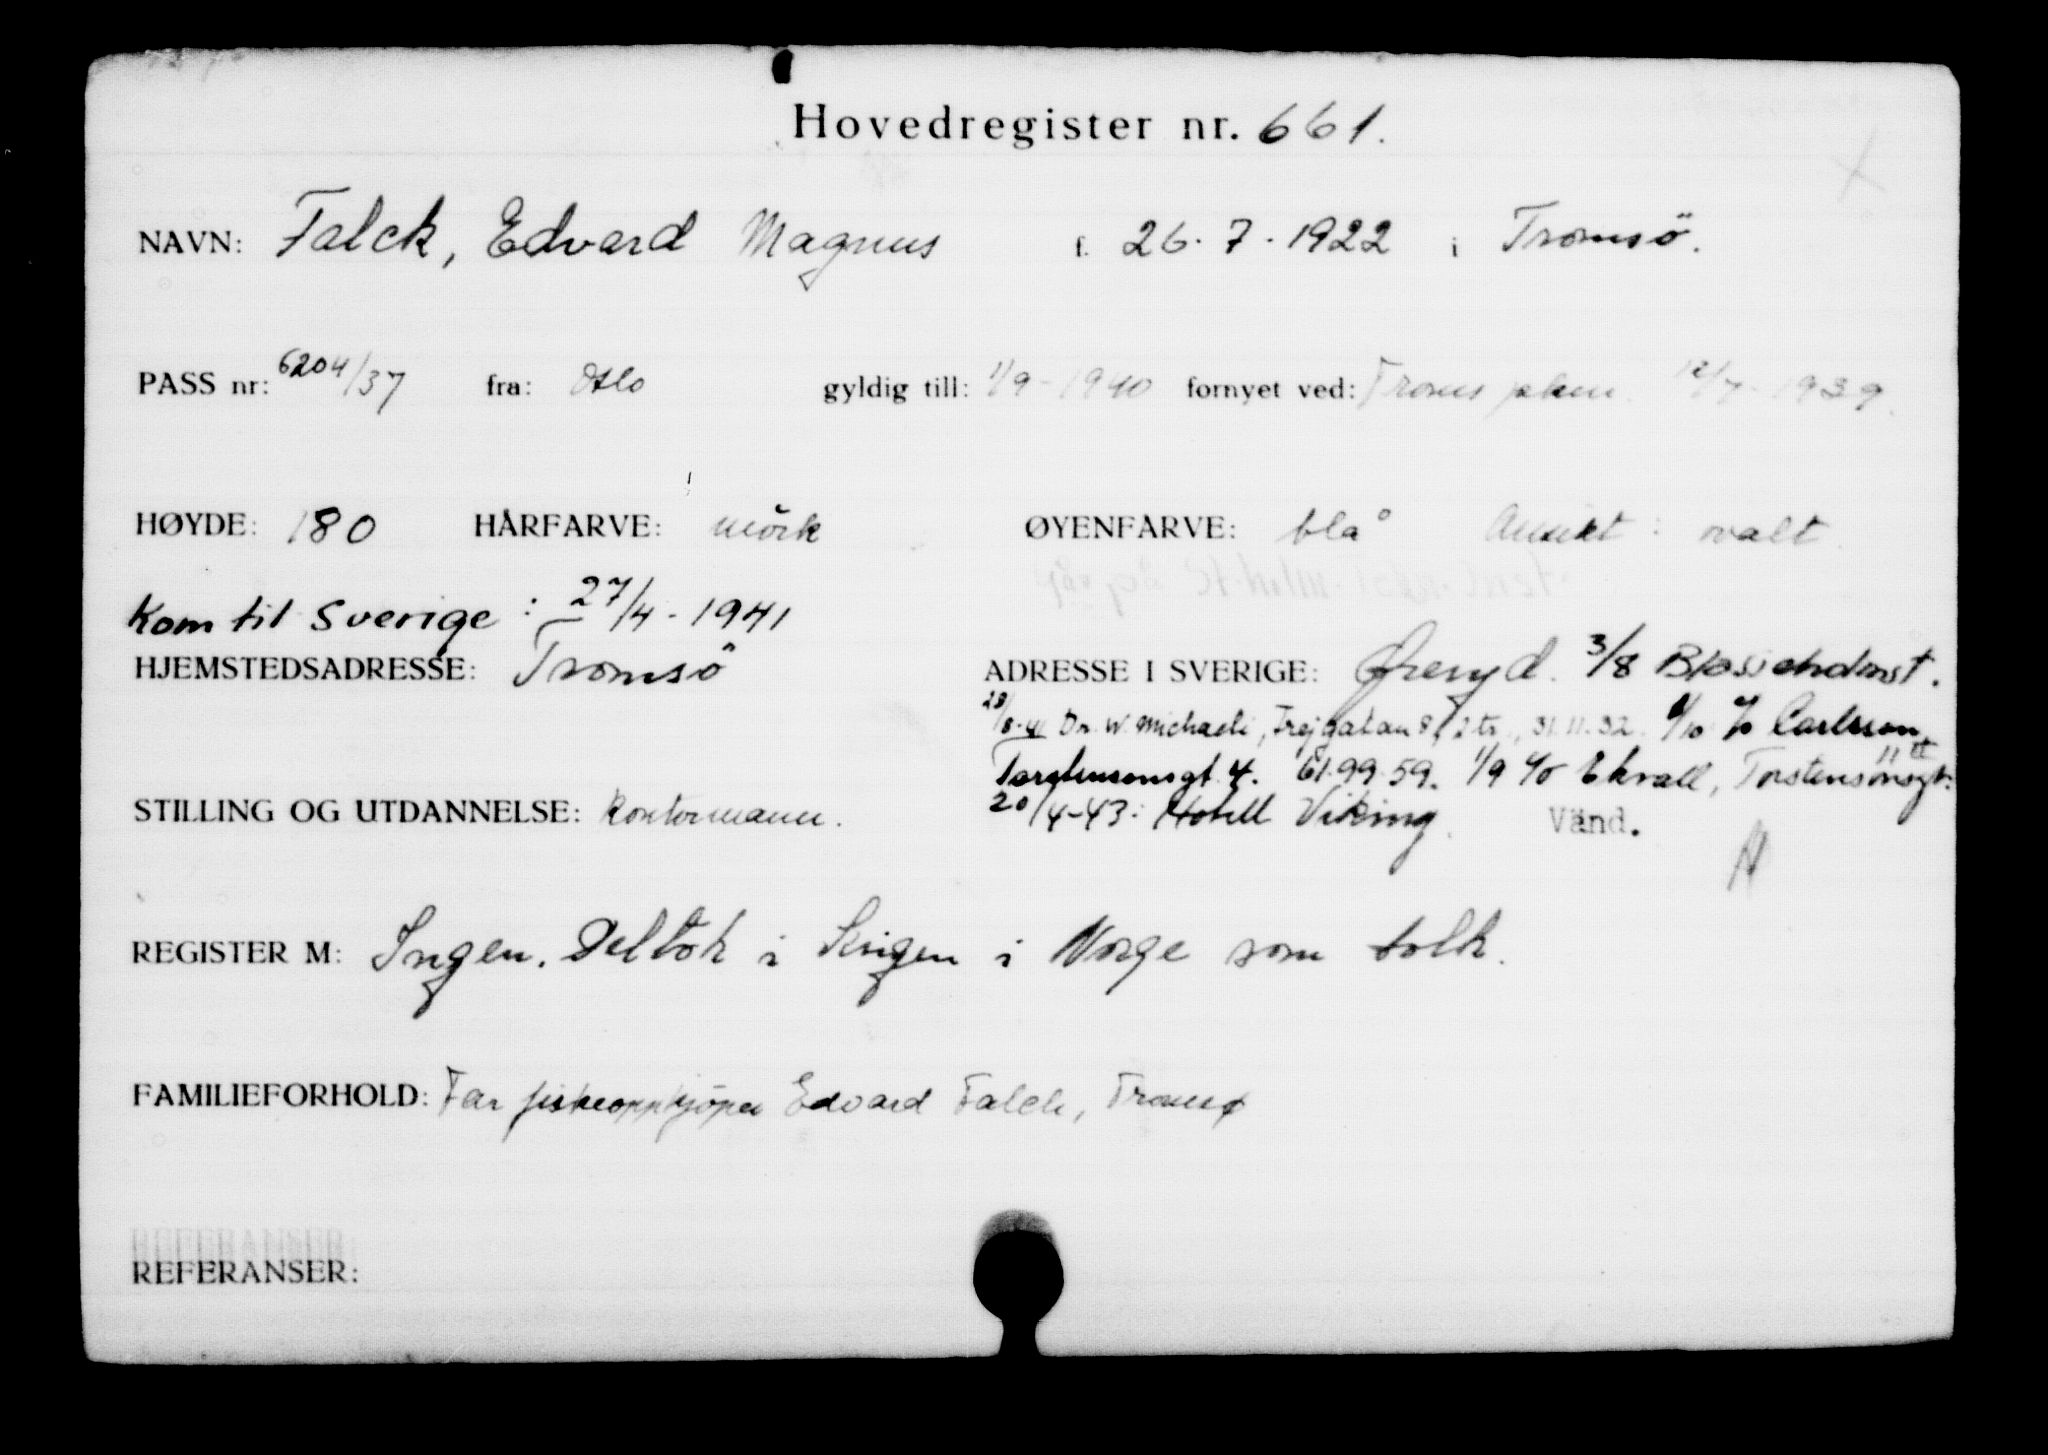 Hovedregister nr. 661.
NAVN: Falck, Edvard Magnus f. 26.7.1922 i Tromsö.
PASS nr: 6204/37 fra: Oslo gyldig till: 1/9-1940 fornyet ved: Troms 12/7-1939.
HØYDE: 180 HÅRFARVE: mörk ØYENFARVE: blå Ansikt: ovalt
Kom til Sverige: 27/4-1941
HJEMSTEDSADRESSE: Tromsö ADRESSE I SVERIGE: Öreryd. 3/8
28/8-41 Dr. W. Michaeli, Frejgatan 8, 2 tr., 31.11.32. c/o Carlsson,
Torstensonsgt. 4. 61.99.59. 1/9 c/o Ekvall, Torstensonsgt.
STILLING OG UTDANNELSE: kontormann. 20/4-43: Hotell Viking. Vänd.
REGISTER M: Ingen. Deltok i krigen i Norge som tolk.
FAMILIEFORHOLD: Far fiskeoppkjöper Edvard Falck, Tromsø
REFERANSER: